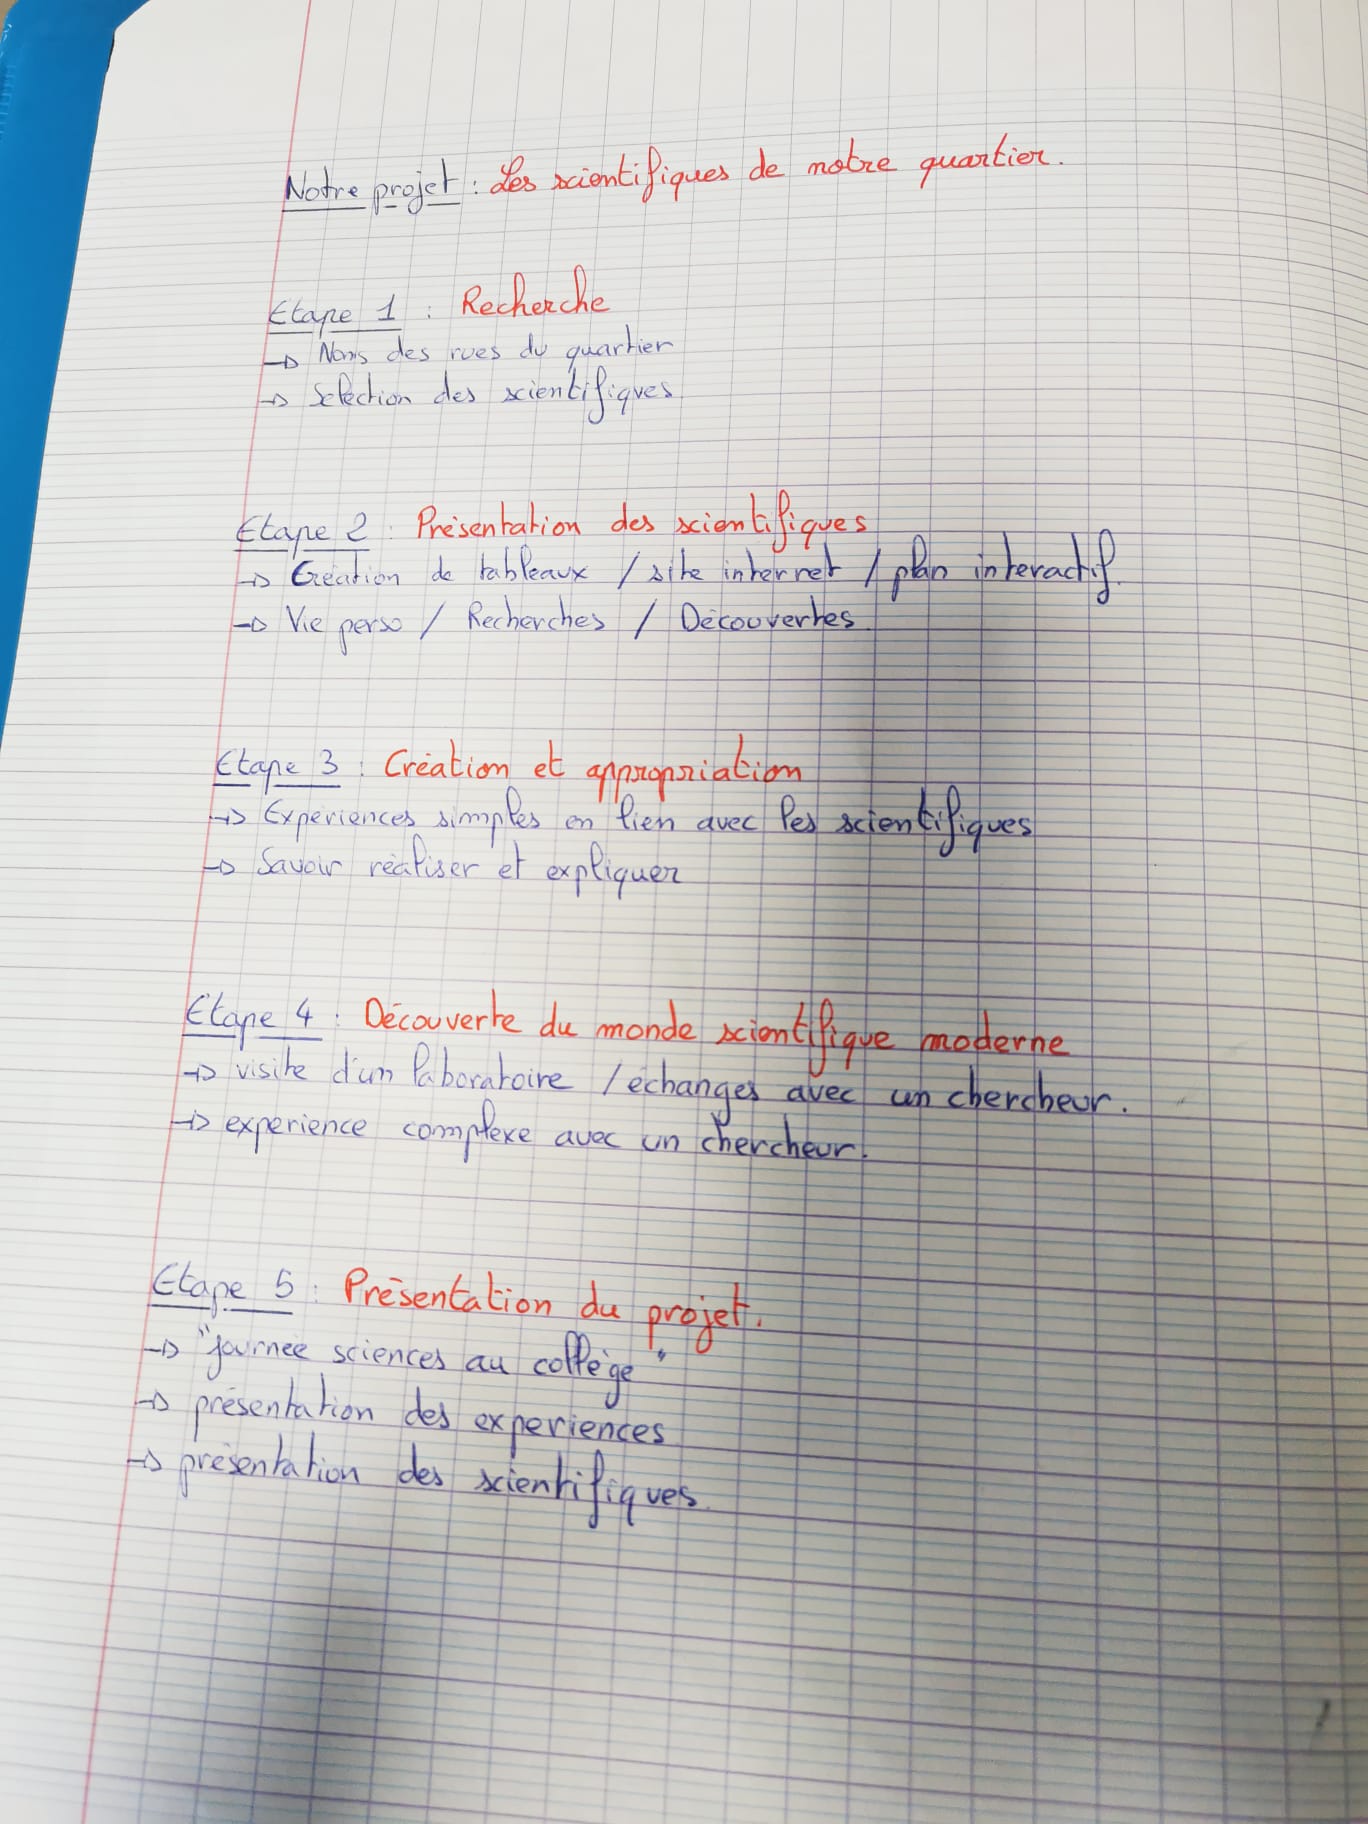 Notre projet : Les scientifiques de notre quartier.
Etape 1 : Recherche
→ Noms des rues du quartier
→ Sélection des scientifiques
Etape 2 : Présentation des scientifiques
→ Création de tableaux / site internet / plan interactif.
→ Vie perso / Recherches / Découvertes.
Etape 3 : Création et appropriation
→ Expériences simples en lien avec les scientifiques
→ Savoir réaliser et expliquer
Etape 4 : Découverte du monde scientifique moderne
→ visite d'un laboratoire / échanges avec un chercheur.
→ expérience complexe avec un chercheur.
Etape 5 : Présentation du projet.
→ "journée sciences au collège"
→ présentation des expériences
→ présentation des scientifiques.